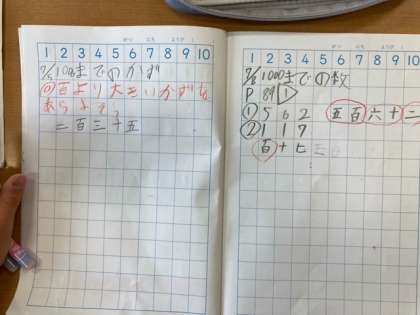 1 2 3 4 5 6 7 8 9 10
1000までのかず
百より大きいかずを
あらよそう
二百三十五
1 2 3 4 5 6 7 8 9 10
1000までの数
P 89 1
① 5 6 2 五百六十二
② 1 1 7
百十七